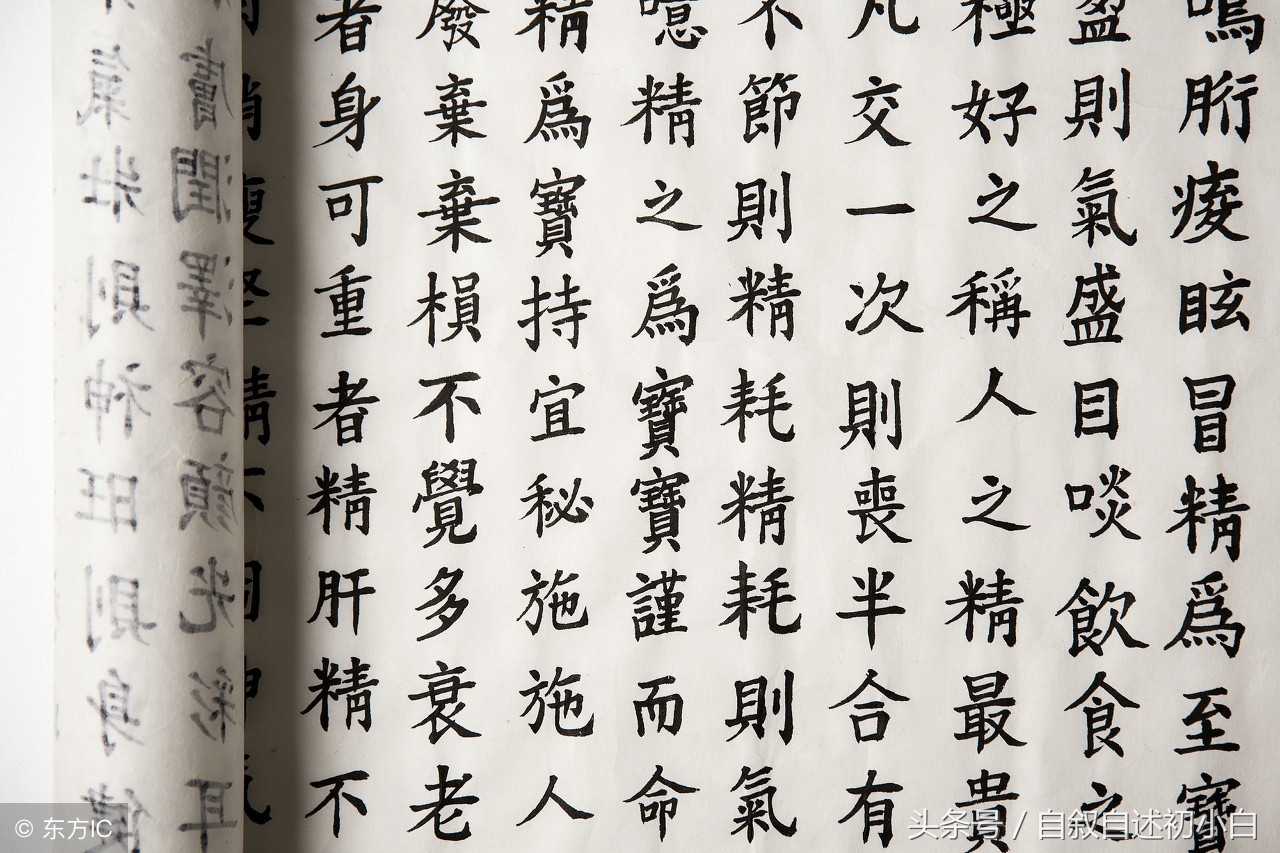 鳴胻痠眩冒精爲至寶
盈則氣盛目啖飲食之
極好之稱人之精最貴
凡交一次則喪半合有
不節則精耗精耗則氣
噫精之爲寶寶謹而命
精爲寶持宜秘施施人
廢棄棄損不覺多衰老
者身可重者精肝精不
膚潤澤容顏光彩耳
氣壯則神旺則身健
© 东方IC
头条号 / 自叙自述初小白